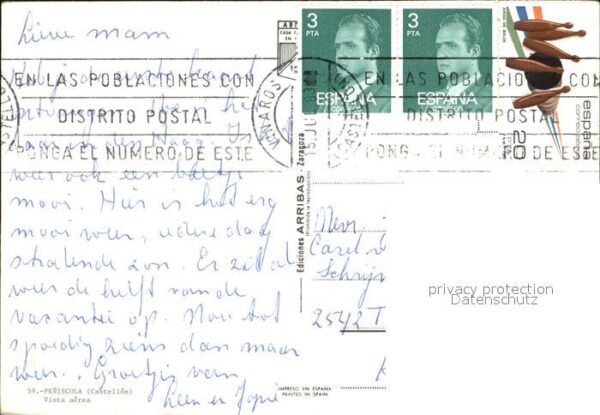 Lieve mam
EN LAS POBLACIONES CON
DISTRITO POSTAL
PONGA EL NUMERO DE ESTE
in den Haag. Is
weer ook een beetje
mooi. Hier is het erg
mooi weer, iedere dag
stralende zon. Er zit al
weer de helft van de
vacantie op. Nou tot
spoedig ziens dan maar
weer. Groetjes van
Leen en Jopie
59.-PEÑISCOLA (Castellón)
Vista aérea
Ediciones ARRIBAS - Zaragoza
VINAROS
3
PTA
ESPAÑA
3
PTA
ESPAÑA
20
españa
correos
EN LAS POBLACIONES CON
DISTRITO POSTAL
PONGA EL NUMERO DE ESTE
Mevr.
Carel
Schrijn
2542 T
privacy protection
Datenschutz
IMPRESO EN ESPAÑA
PRINTED IN SPAIN